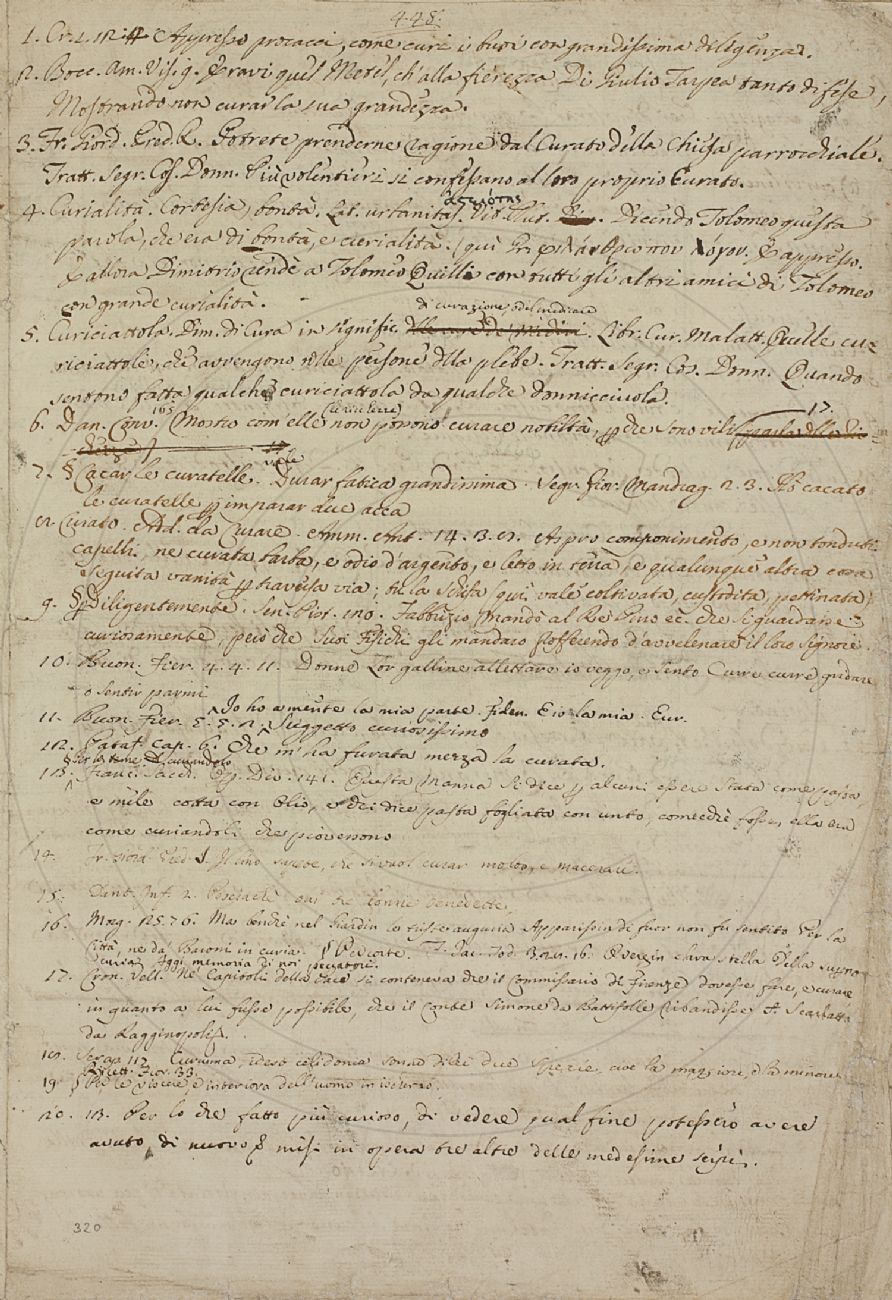 448.
1. Cr. 2. 12. Appresso procacci, come curi i buoi con grandissima diligenza.
2. Bocc. Am. Vis. 9. Eravi quel Metel, ch'alla fierezza Di Giulio Tarpea tanto difese,
Mostrando non curar la sua grandezza.
3. Fr. Giord. Pred. R. Potrete prenderne ragione dal Curato della Chiesa parrocchiale.
Tratt. Segr. Cos. Donn. Più volentieri si confessano al loro proprio Curato.
4. Curialità. Cortesia, bontà. Lat. urbanitas. Vit. Plut. Dicendo Tolomeo questa
parola, che era di bontà, e curialità. (qui Gr. φιλάνθρωπον λόγον. E appresso.
E allora Dimitrio rendè a Tolomeo Quilli con tutti gli altri amici di Tolomeo
con grande curialità.
di curazione, o del medicare
5. Curiciattola. Dim. di Cura in signific. Libr. Cur. Malatt. Quelle cu-
riciattole, che avvengono nelle persone della plebe. Tratt. Segr. Cos. Donn. Quando
sentono fatta qualche curiciattola da qualche donnicciuola.
6. Dan. Conv. 165 Mostra com'elle non possono curare nobiltà, che sono vili 17.
7. § Cacar le curatelle. vale Durar fatica grandissima. Segr. Fior. Mandrag. 2. 3. Ho cacato
le curatelle per imparar due acca
8. Curato. Add. da Curare. Amm. Ant. 14. 3. 8. Aspro componimento, e non tonduti
capelli, ne curata barba, e odio d'argento, e letto in terra, e qualunque altra cosa
seguita vanità per traversa via; tu la schifa (qui vale coltivata, custodita, pettinata)
9. § Diligentemente. Sen. Pist. 120. Fabbrizio mandò al Re Pirro ec. che si guardasse
curiosamente, però che suoi Fisichi gli mandaro profferendo d'avvelenare il loro signore.
10. Buon. Fier. 4. 4. 11. Donne Lor galline allettare io veggo, e sento Curre curre gridare
o sentir parmi
11. Buon. Fier. 5. 5. 2. Io ho a mente la mia parte. Fiden. E io la mia. Cur.
Suggetto curiosissimo
12. Pataf. Cap. 6. Che m'ha furata mezza la curata.
13. Franc. Sacch. Op. Div. 141. Questa Manna si dice per alcuni essere stata come pasta,
e mele cotta con olio, e chi dice pasta fogliata con unto, comechè fosse, ella era
come curiandoli che piovessono
14. Fr. Giord. Pred. S. Il lino sapete, che si vuol curar molto, e macerare.
15. Dant. Inf. 2. Posciachè tai tre donne benedette,
16. Morg. 25. 76. Ma benchè nel Giardin le triste auguria Apparissin di fuor non fu sentito Per la
Città, nè da' Baroni in curia. § Per corte. F. Jac. Tod. 3. 21. 16. O vergin chiara stella Della superna
curia. Aggi memoria di noi peccatori.
17. Cron. Vell. Ne' Capitoli della pace si conteneva che il Commissario di Firenze dovesse fare, e curare
in quanto a lui fusse possibile, che il Conte Simone da Battifolle ribandisse A. Scarlatto
da Ragginopoli.
18. Serap. 117. Curcuma, idest celidonia sonne di lei due spezie, cioè la maggiore, e la minore.
Ricett. Fior. 33.
19. § Per le viscere, e interiora dell'uomo in ischerzo.
20. 113. Per lo che fatto più curioso, di vedere qual fine potessero avere
avuto, di nuovo misi in opera tre altre delle medesime serpi.
320